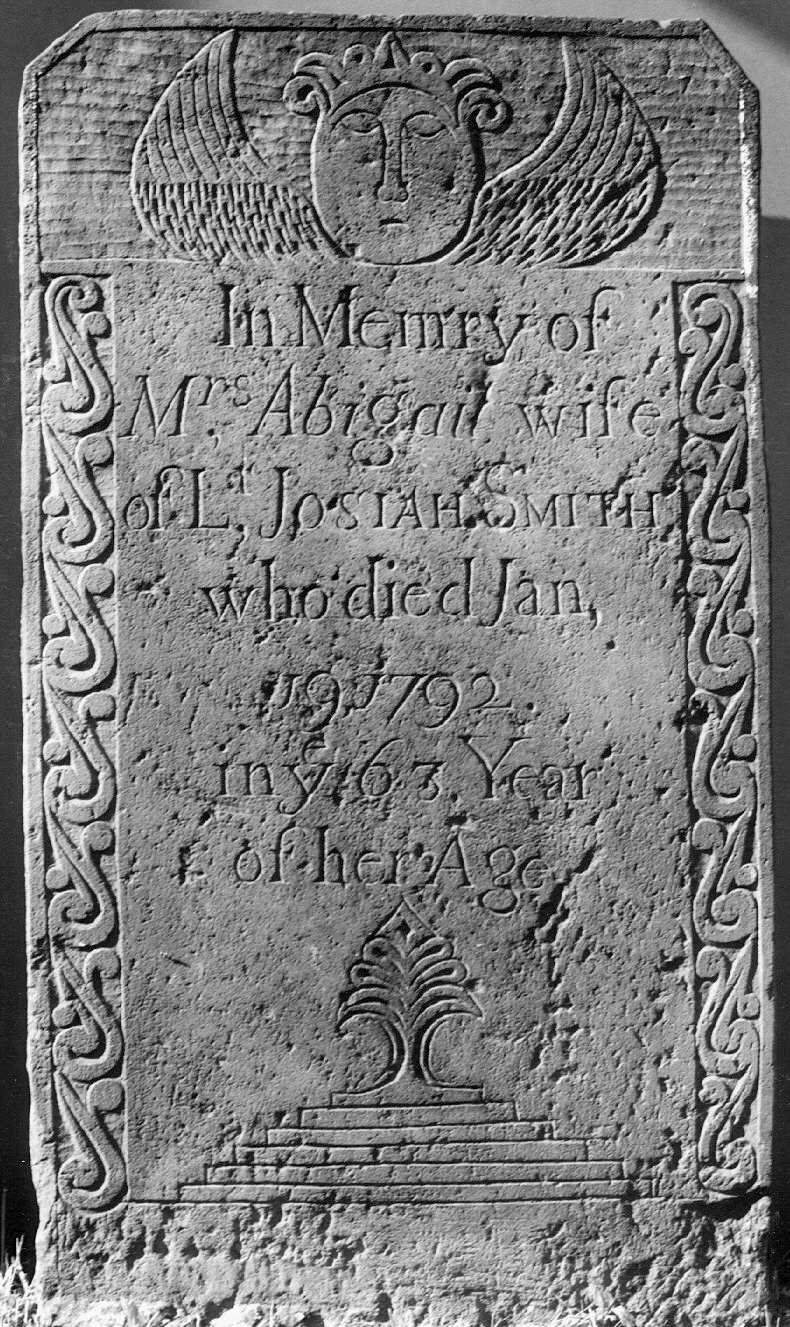 In Memry of
Mrs, Abigail wife
of Lt, JOSIAH SMITH
who died Jan,
19, 1792.
in ye 63 Year
of her Age